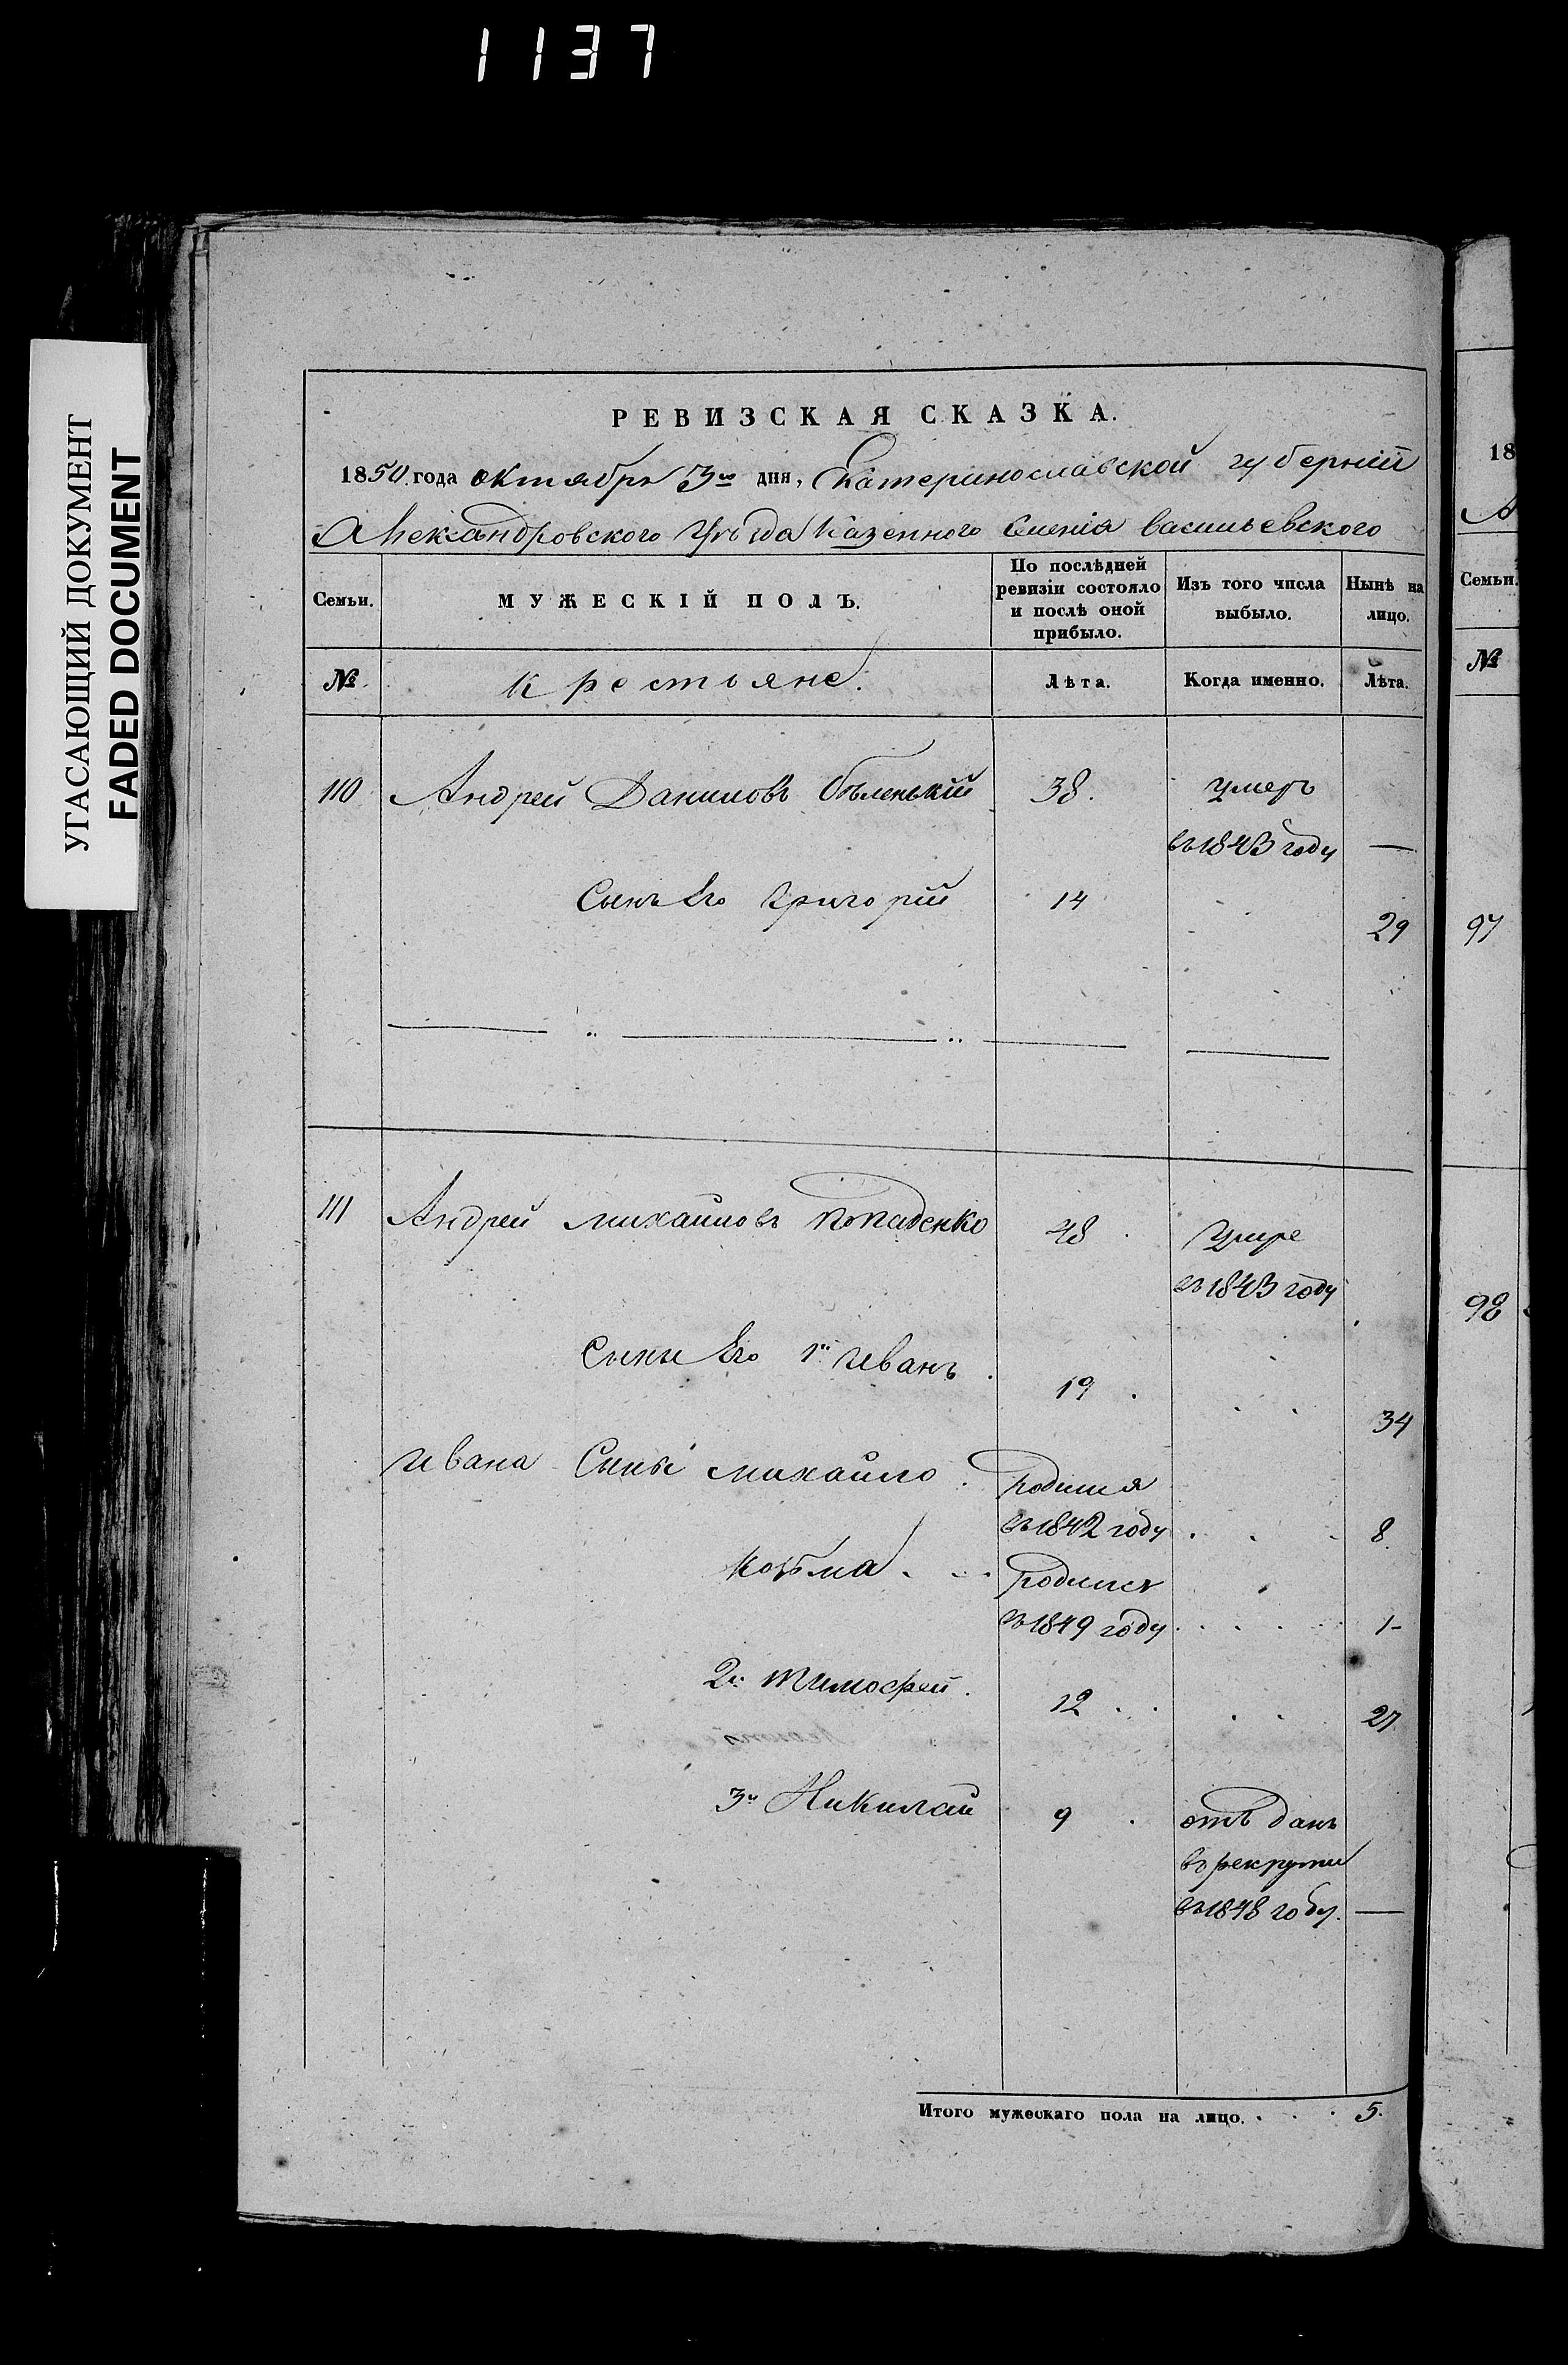 1137
УГАСАЮЩИЙ ДОКУМЕНТ
FADED DOCUMENT
РЕВИЗСКАЯ СКАЗКА.
1850 года октября 3го дня, Екатеринославской губерніи
Александровского уѣзда Казенного Селенія васильевского
Семьи. МУЖЕСКІЙ ПОЛЪ. По послѣдней ревизіи состояло и послѣ оной прибыло. Изъ того числа выбыло. Нынѣ на лицо.
№ крестьяне. Лѣта. Когда именно. Лѣта.
110 Андрей Даниловъ бѣленькій 38. умеръ
въ 1843 году —
Сынъ Его григорій 14 29
111 Андрей михайловъ 48 умре
въ 1843 году
Сыны Его 1й иванъ 19 34
ивана Сыны михайло родился
въ 1842 году 8
козьма родился
въ 1849 году 1
2й тимофей. 12 27
3й Николай 9 отъ данъ
въ рекруты
въ 1848 году. —
Итого мужескаго пола на лицо. 5.
18
А
Семьи.
№
97
98